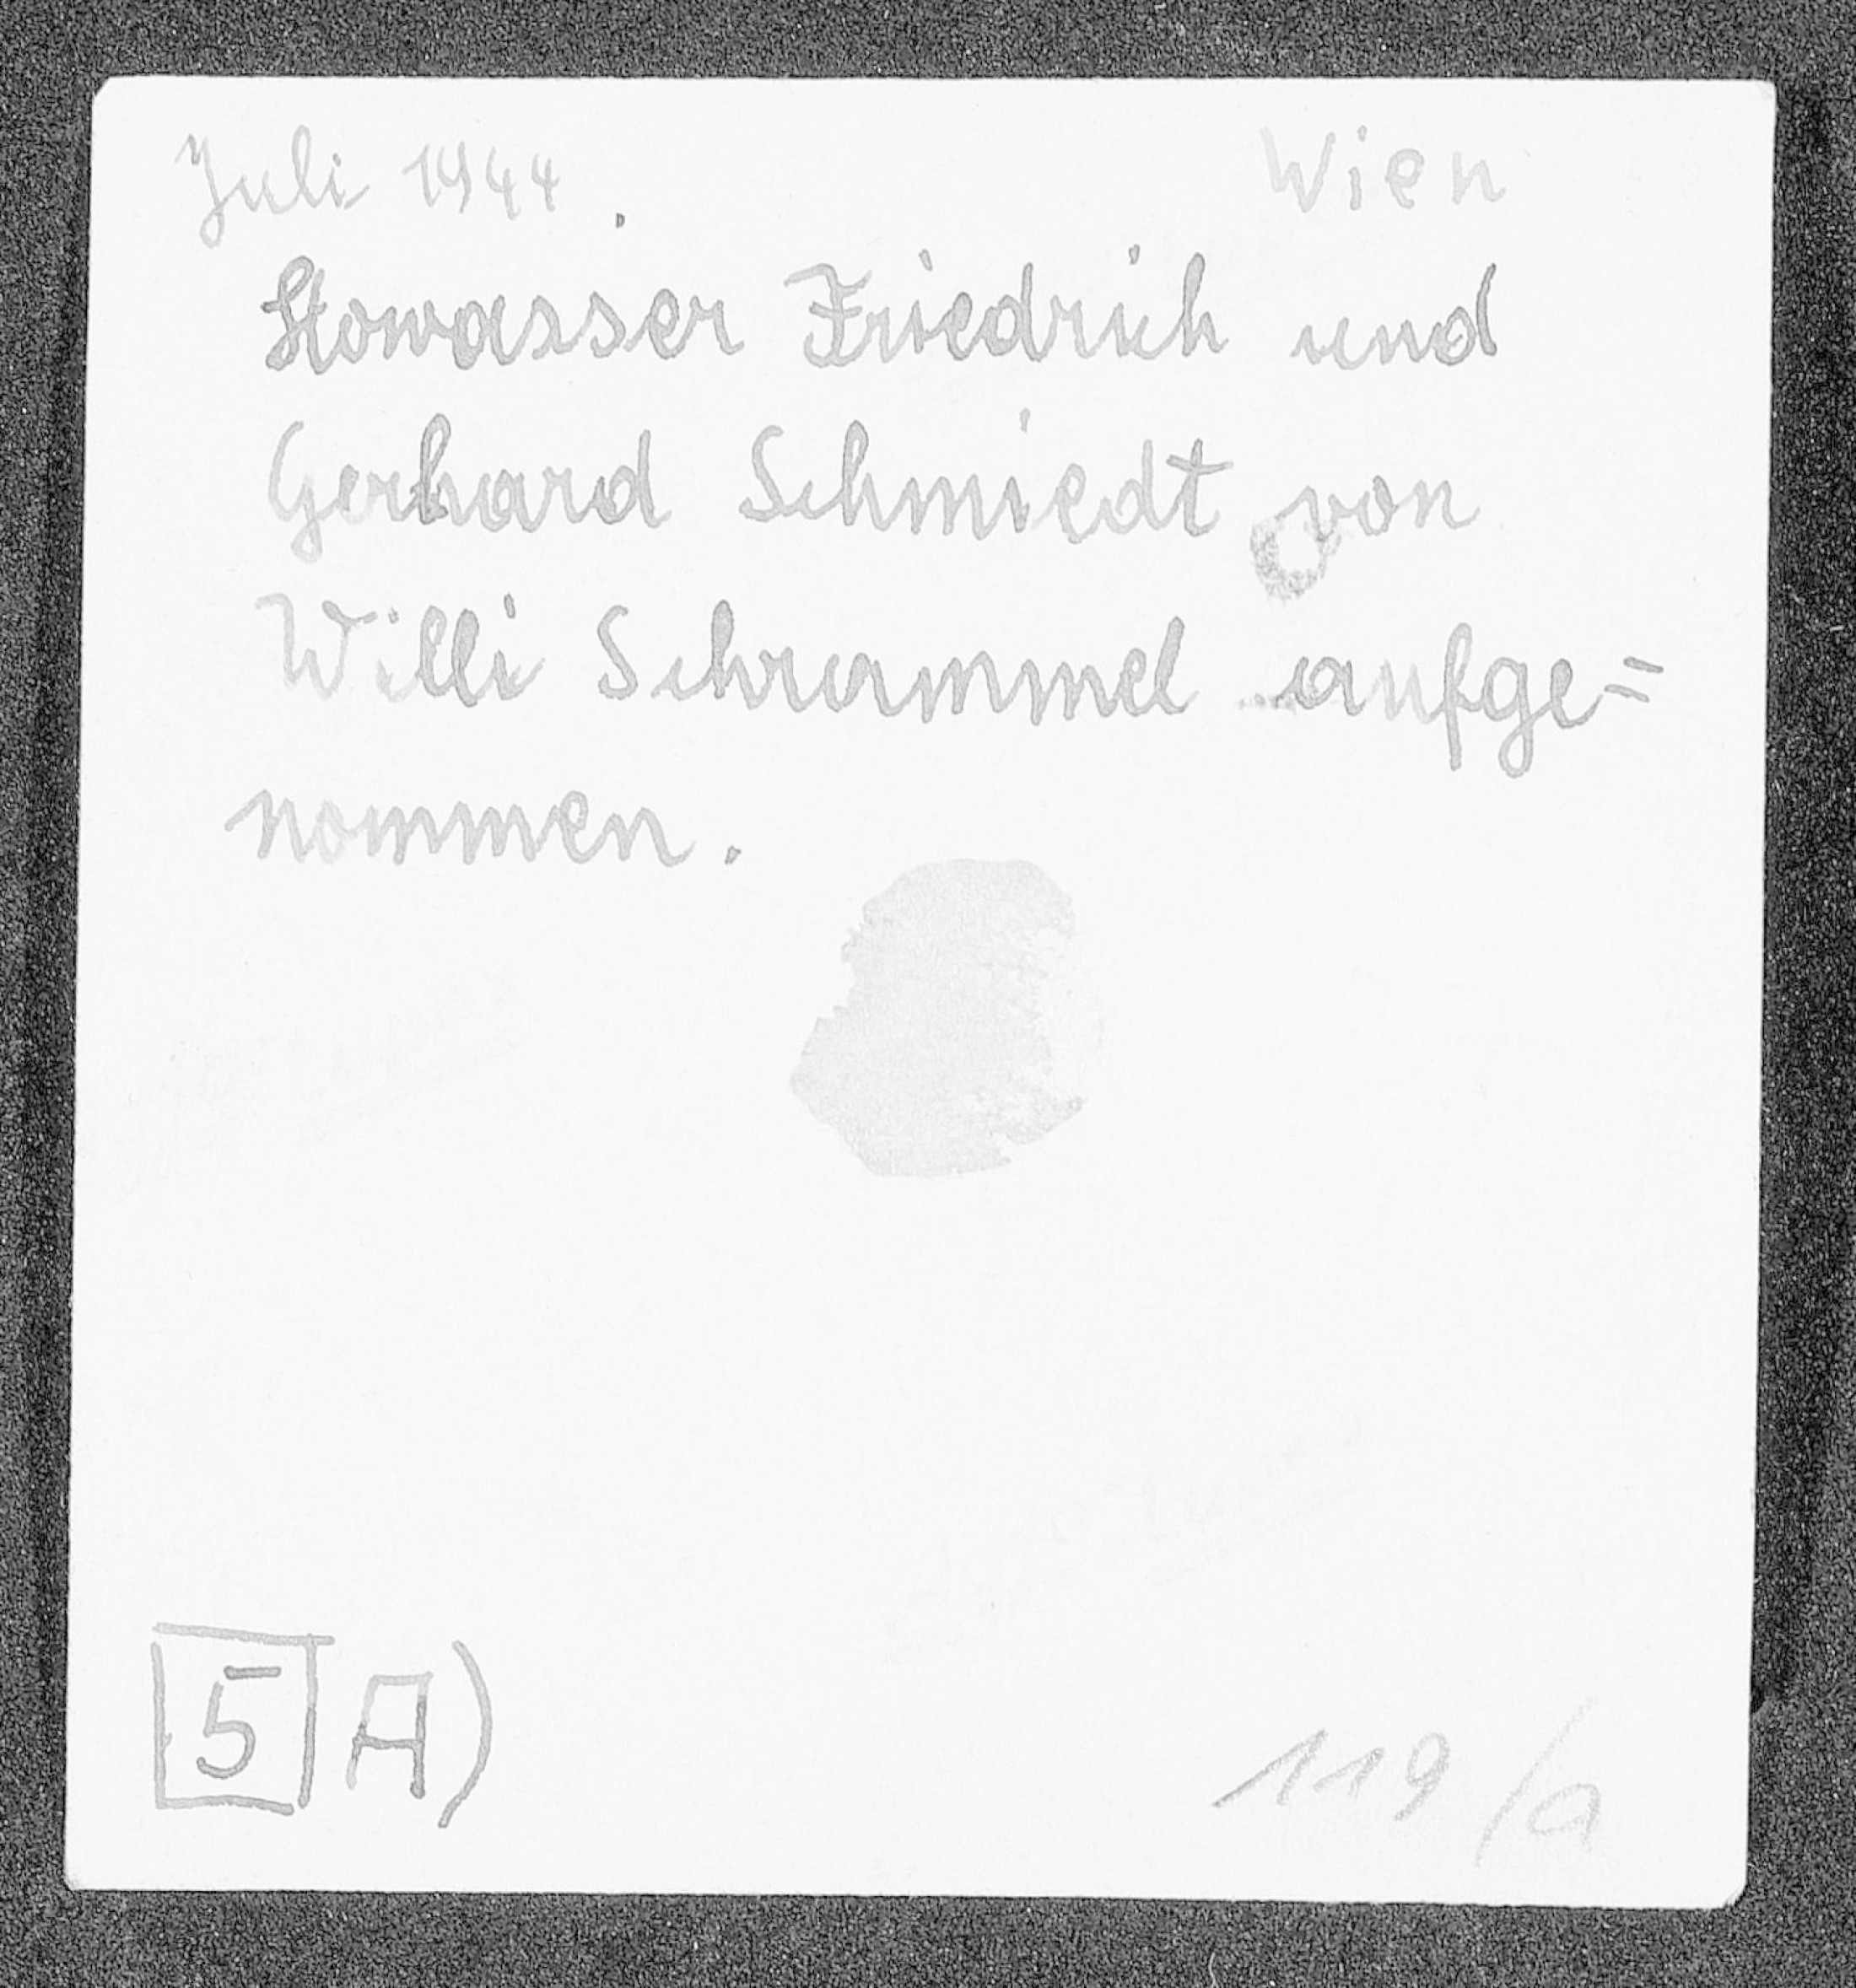 Juli 1944. Wien
Stowasser Friedrich und
Gerhard Schmiedt von
Willi Schrammel aufge=
nommen.
5 A)
119/a